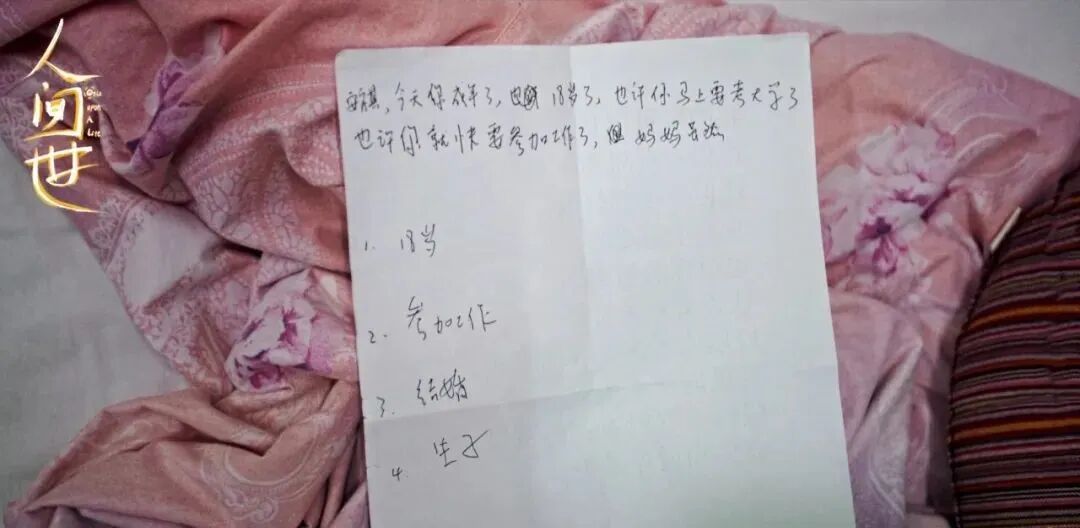 人间世
Once
upon
A
Life
今天你成年了，18岁了，也许你马上要考大学了
也许你就快要参加工作了，但妈妈无法
1. 18岁
2. 参加工作
3. 结婚
4. 生子